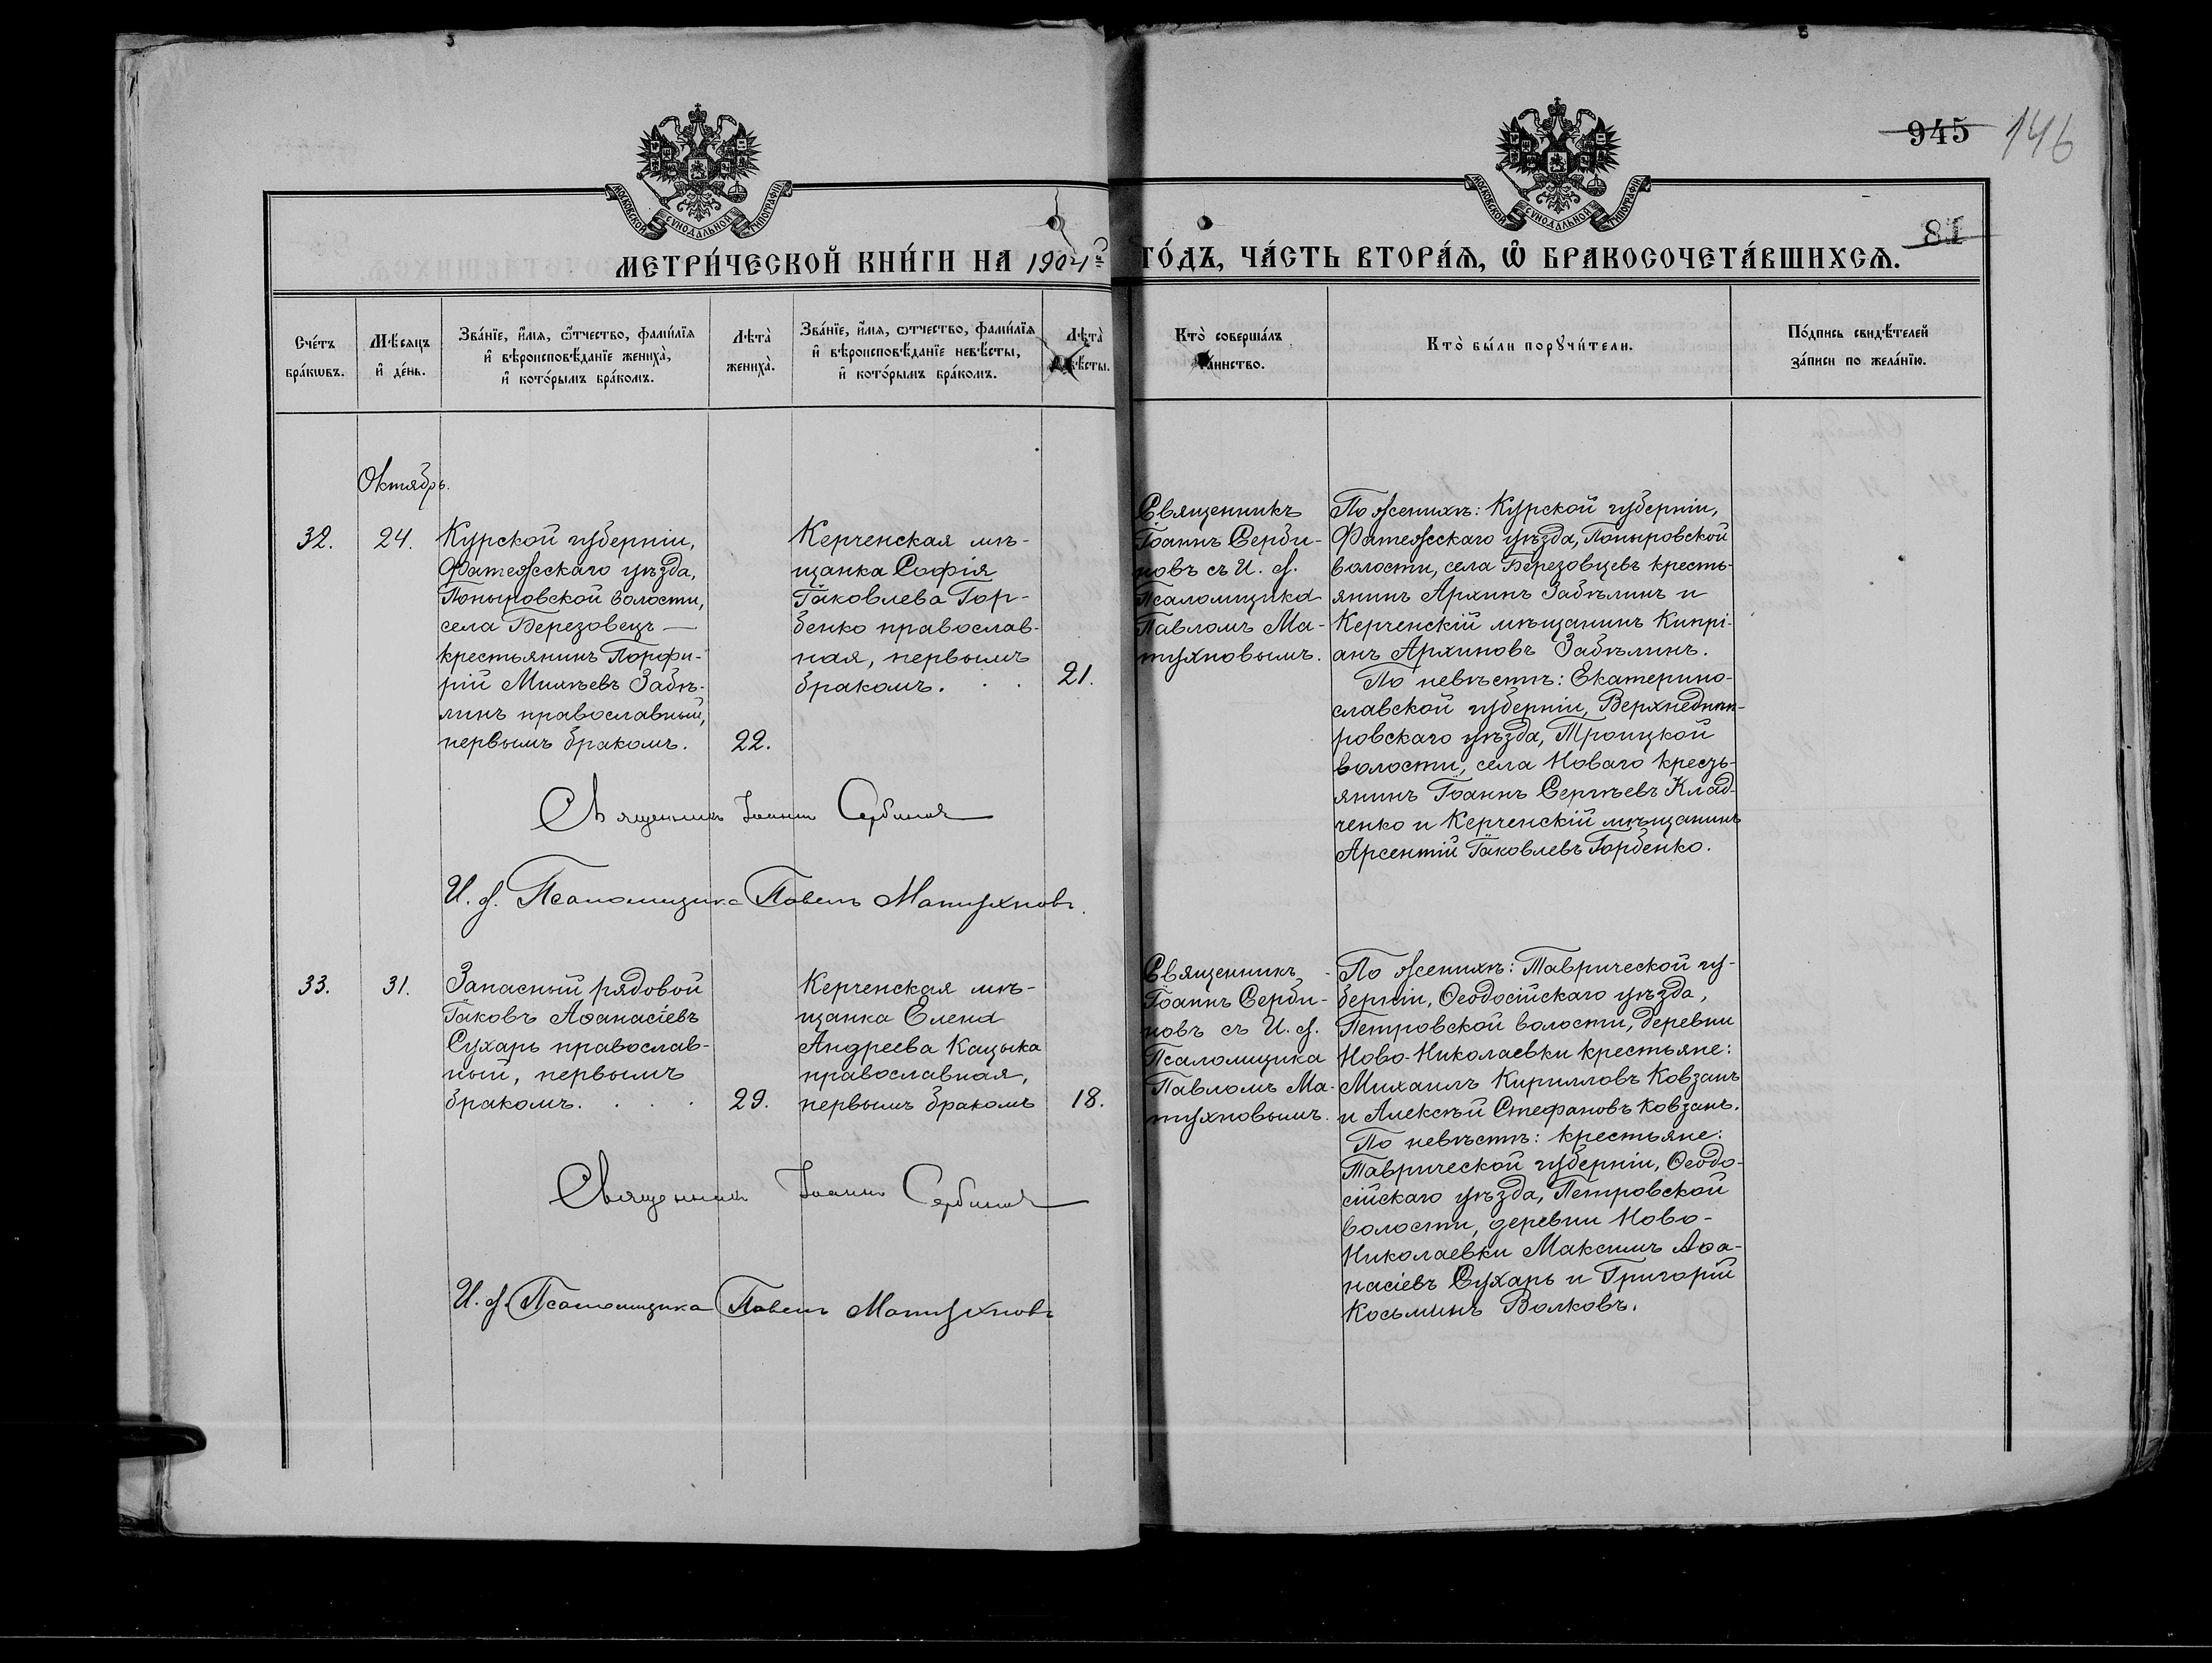 945 146
МОСКОВСКОЙ СУНОДАЛЬНОЙ ТИПОГРАФІИ
МОСКОВСКОЙ СУНОДАЛЬНОЙ ТИПОГРАФІИ
81
МЕТРИ́ЧЕСКОЙ КНИ́ГИ НА 1904й ГО́ДЪ, ЧА́СТЬ ВТОРА́Ѧ, Ѽ БРАКОСОЧЕТА́ВШИХСѦ.
Сче́тъ
бра́кѡвъ.
Мѣ́сяцъ
и҆ де́нь.
Зва́нїе, и҆́мя, ѻ҆́тчество, фами́лїя
и҆ вѣроисповѣ́данїе жениха̀,
и҆ кото́рымъ бра́комъ.
Лѣта̀
жениха̀.
Зва́нїе, и҆́мя, ѻтчество, фами́лїя
и҆ вѣроисповѣ́данїе невѣ́сты,
и҆ кото́рымъ бра́комъ.
Лѣта̀
невѣ́сты.
Кто̀ соверша́лъ
таинство.
Кто̀ бы́ли порꙋчи́тели.
По́дпись свидѣ́телей
за́писи по жела́нїю.
Октябрь.
32.
24.
Курской губерніи,
Фатежскаго уѣзда,
Поныровской волости,
села Березовецъ —
крестьянинъ Порфи-
рій Михѣевъ Забѣ-
линъ православный,
первымъ бракомъ.
22.
Керченская мѣ-
щанка Софія
Іаковлева Гор-
бенко православ-
ная, первымъ
бракомъ. . .
21.
Священникъ
Іоаннъ Серби-
новъ съ И. д.
Псаломщика
Павломъ Ма-
тухновымъ.
По женихѣ: Курской губерніи,
Фатежскаго уѣзда, Поныровской
волости, села Березовцевъ кресть-
янинъ Архипъ Забѣлинъ и
Керченскій мѣщанинъ Кипрі-
анъ Архиповъ Забѣлинъ.
По невѣстѣ: Екатерино-
славской губерніи, Верхнеднѣп-
ровскаго уѣзда, Троицкой
волости, села Новаго кресть-
янинъ Іоаннъ Сергѣевъ Клад-
ченко и Керченскій мѣщанинъ
Арсентій Іаковлевъ Горбенко.
Священникъ Іоаннъ Сербиновъ
И. д. Псаломщика Павелъ Матухновъ.
33.
31.
Запасный рядовой
Іаковъ Аѳанасіевъ
Сухарь православ-
ный, первымъ
бракомъ. . . . .
29.
Керченская мѣ-
щанка Елена
Андреева Кацыка
православная,
первымъ бракомъ
18.
Священникъ
Іоаннъ Серби-
новъ съ И. д.
Псаломщика
Павломъ Ма-
тухновымъ.
По женихѣ: Таврической гу-
берніи, Ѳеодосійскаго уѣзда,
Петровской волости, деревни
Ново-Николаевки крестьяне:
Михаилъ Кирилловъ Ковзанъ
и Алексѣй Стефановъ Ковзанъ.
По невѣстѣ: крестьяне:
Таврической губерніи, Ѳеодо-
сійскаго уѣзда, Петровской
волости, деревни Ново-
Николаевки Максимъ Аѳа-
насіевъ Сухарь и Григорій
Косьминъ Волковъ.
Священникъ Іоаннъ Сербиновъ
И. д. Псаломщика Павелъ Матухновъ